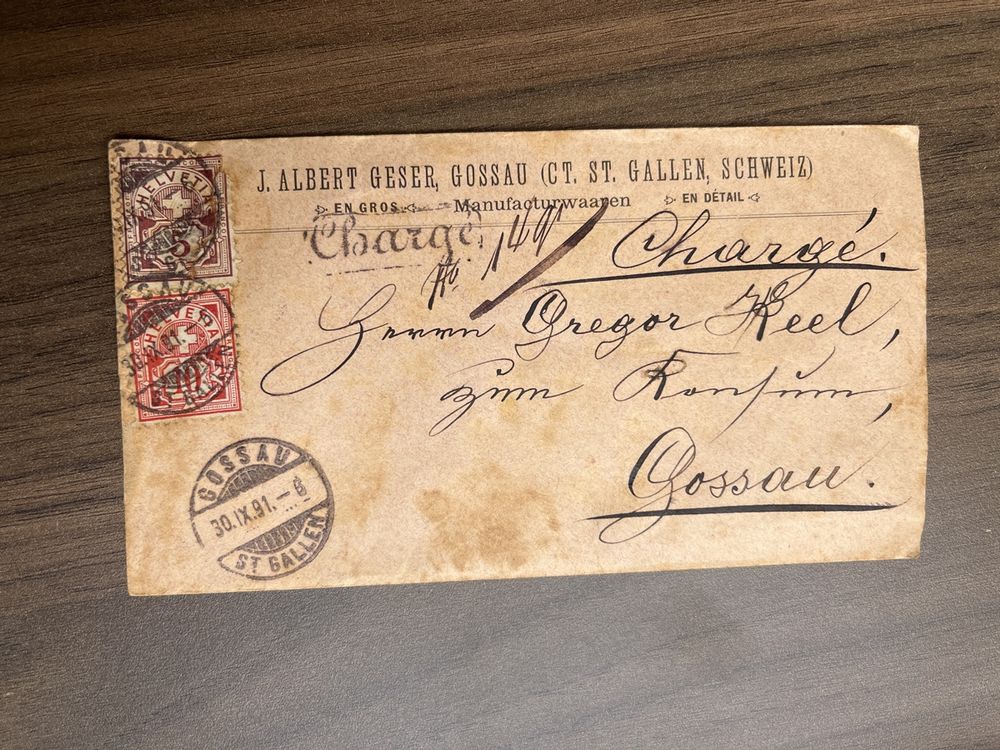 J. ALBERT GESER, GOSSAU (CT. ST. GALLEN, SCHWEIZ)
EN GROS Manufacturwaaren EN DÉTAIL
Chargé
No.
Chargé.
Herrn Gregor Keel,
zum Konsum,
Gossau.
HELVETIA
5
HELVETIA
10
GOSSAU
30.IX.91.
ST GALLEN